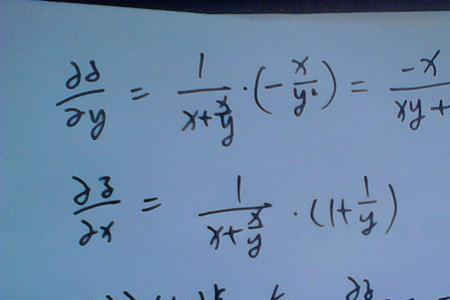 ∂z/∂y = 1/(x+x/y) · (-x/y²) = -x/(xy+
∂z/∂x = 1/(x+x/y) · (1+1/y)
∂z